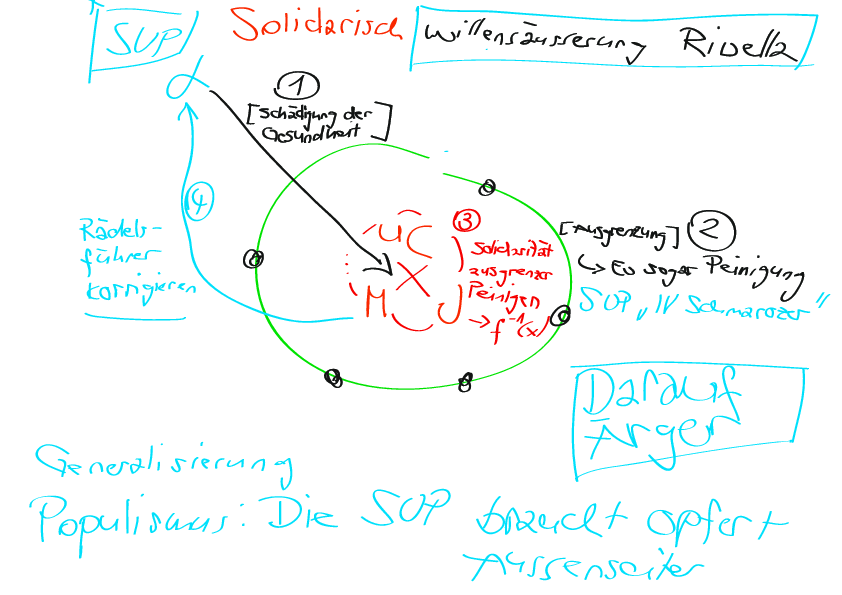 SVP
Solidarisch
Willensäusserung Rivella
α
1
[Schädigung der
Gesundheit]
4
Rädels-
führer
korrigieren
ü C
X
M J
3
Solidarität
ausgrenzer
Peinigen
→ f⁻¹(x)
[Ausgrenzung] 2
↳ Ev sogar Peinigung
SVP „IV Schmarozer"
Darauf
Ärger
Generalisierung
Populismus: Die SVP braucht opfer +
Aussenseiter